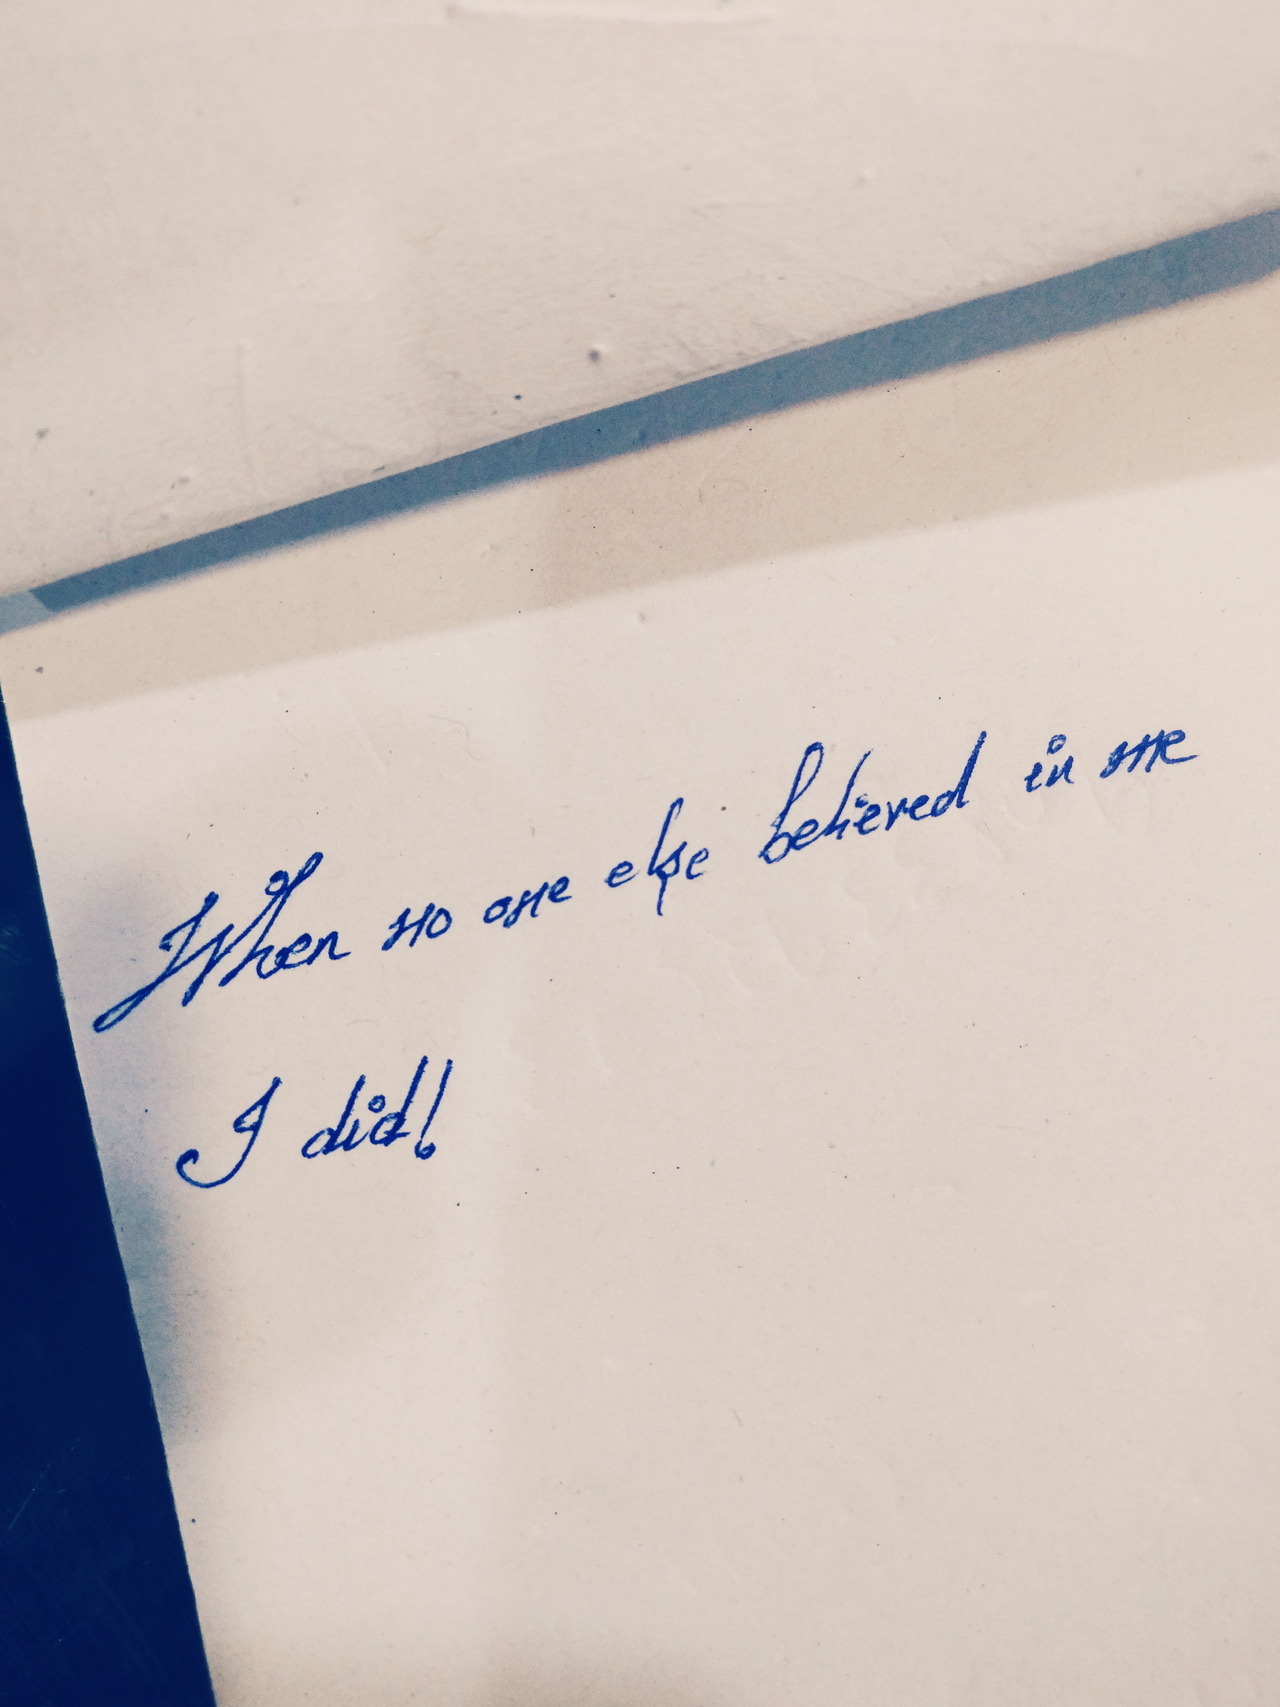 When no one else believed in me
I did!